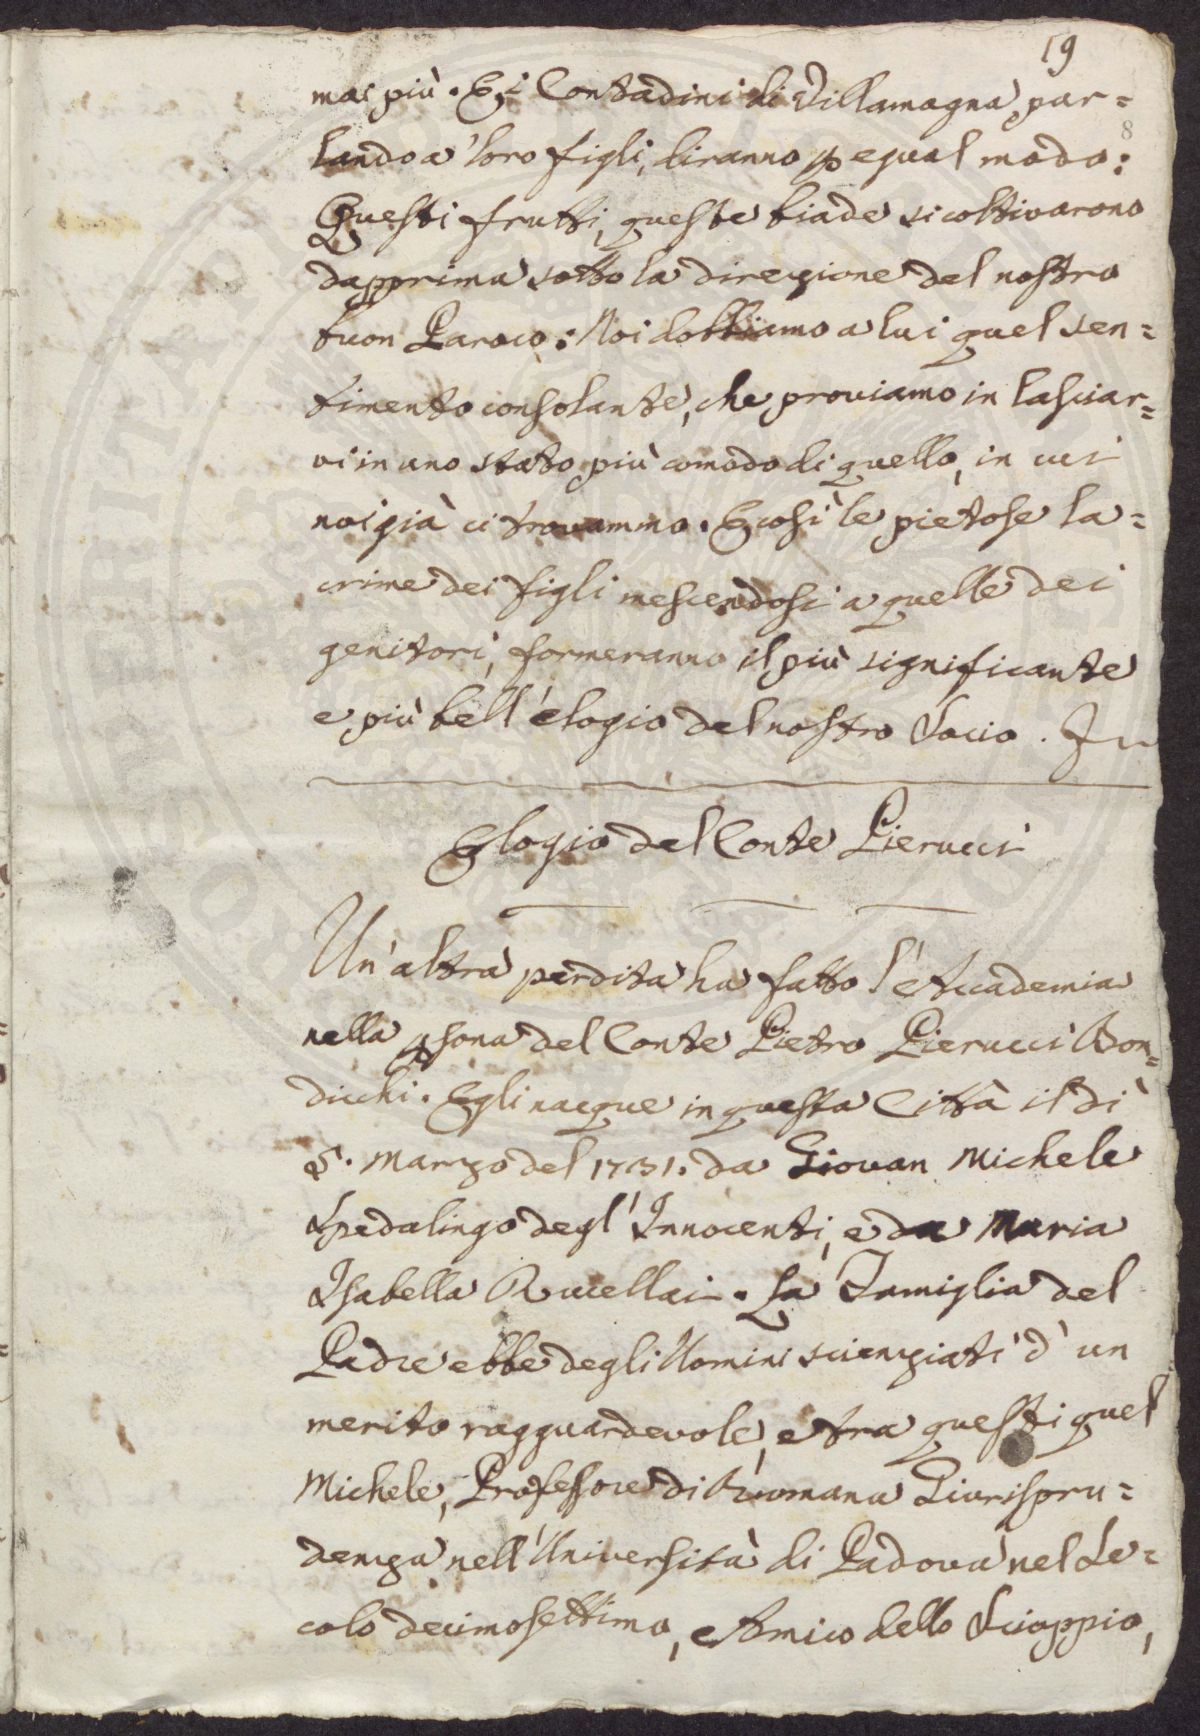 19
8
mai più. E i Contadini di Villamagna, par=
lando a' loro figli, diranno p egual modo:
Questi frutti, queste biade si coltivarono
dapprima sotto la direzione del nostro
buon Paroco: Noi dobbiamo a lui quel sen=
timento consolante, che proviamo in lasciar=
vi in uno stato più comodo di quello, in cui
noi già ci trovammo. E così le pietose la=
crime dei figli mescendosi a quelle dei
genitori, formeranno il più significante
e più bell'elogio del nostro Socio.
Elogio del Conte Pierucci
Un'altra perdita ha fatto l'Accademia
nella psona del Conte Pietro Pierucci Bon=
dicchi. Egli nacque in questa Città il dì
5. Marzo del 1731. da Giovan Michele
Spedalingo degl'Innocenti, e da Maria
Isabella Rucellai. La Famiglia del
Padre ebbe degli Uomini scienziati d'un
merito ragguardevole, e tra questi quel
Michele, Professore di Romana Giurispru=
denza nell'Università di Padova nel Se=
colo decimosettimo, e Amico dello Scioppio,